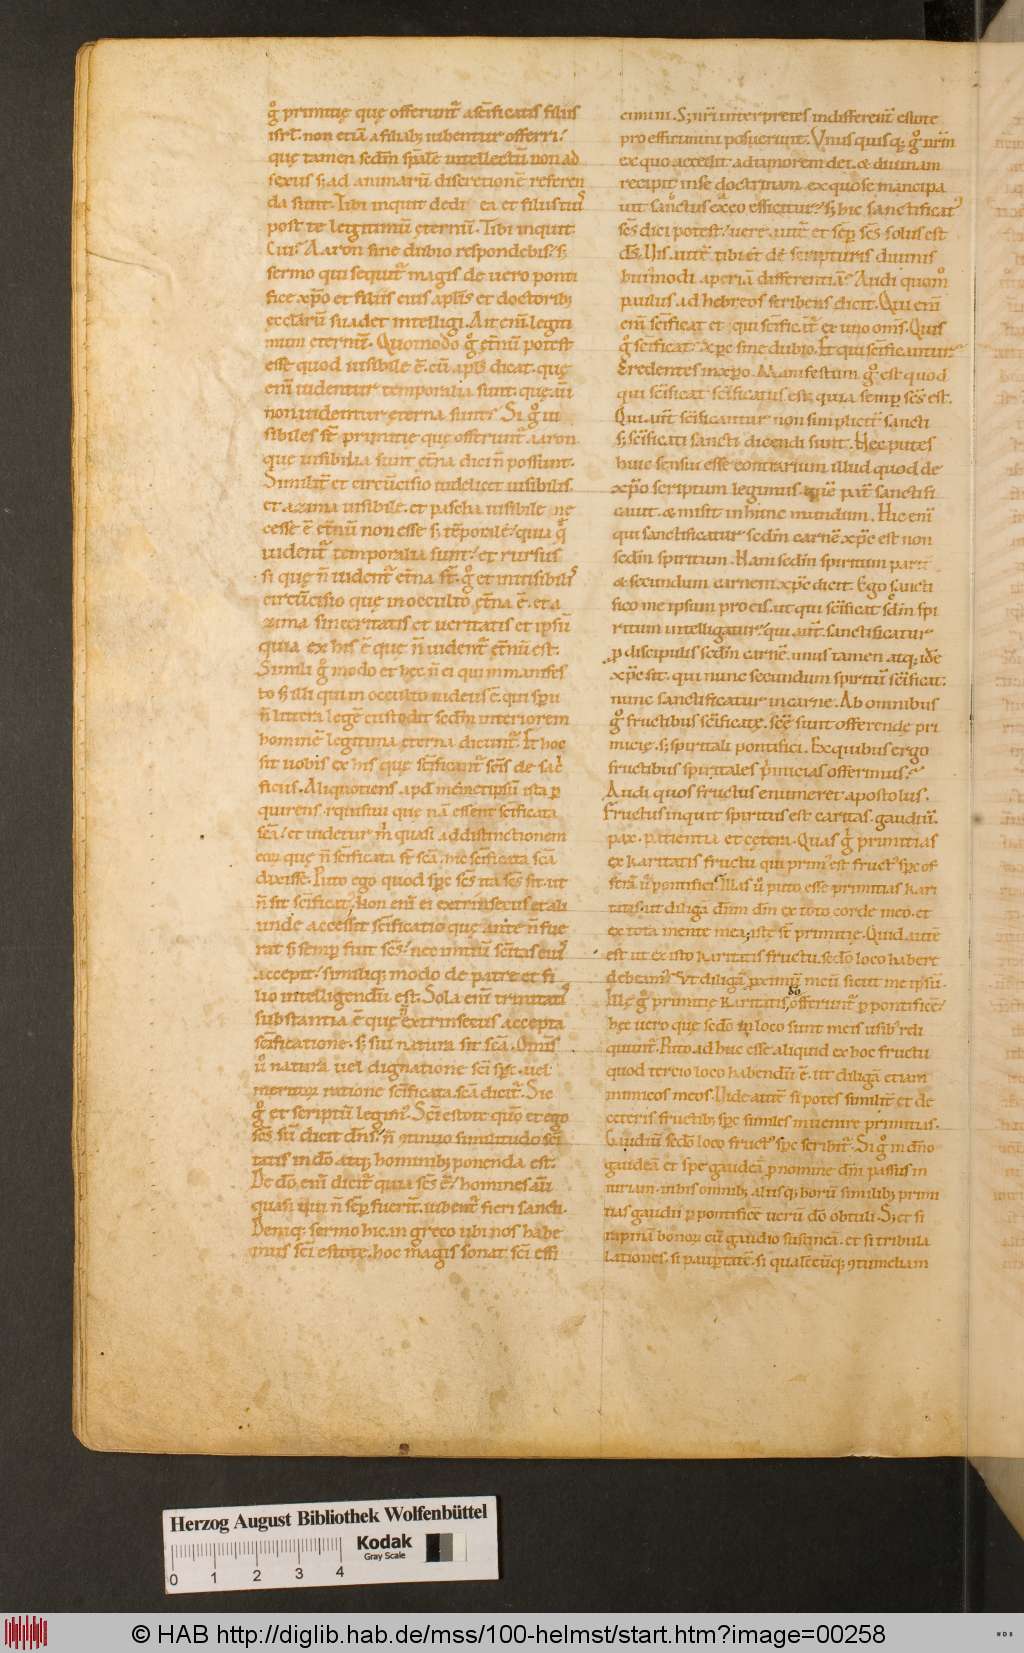 g̊ primitię quę offerunt᷑ a sc̄ificatis filiis
isrl̄. non etiā a filiab; iubentur offerri.
quę tamen sedm̄ sp̄alē intellectū non ad
sexus s; ad animarū discretionē referen
da sunt. Tibi inquit dedi ea et filiis tuis
post te legitimū ęternū. Tibi inquit.
Cui? Aaron sine dubio respondebis. s;
sermo qui sequit᷑ magis de vero ponti
fice xp̄o et filiis eius ap̄lis et doctorib;
ecclarū suadet intelligi. Ait enī. legiti
mum eternū. Quomodo g̊ ęt̄nū potest
esse quod uisibile ē. cū ap̄ls dicat. quę
enī uidentur temporalia sunt. quę aū
non uidentur ęterna sunt. Si g̊ ui
sibiles st̄ primitie quę offerunt᷑ aaron
quę uisibilia sunt et̄na dici n̄ possunt.
Similit᷑ et circūcisio uidelicet uisibilis.
et azima uisibile. et pascha uisibile ne
cesse ē et̄nū non esse s; tēporale. quia q̄
uident᷑ temporalia sunt. et rursus
si quę n̄ uident᷑ et̄na st̄. g̊ et inuisibilis
circūcisio quę in occulto ęt̄na ē. et a
zima sinceritatis et ueritatis et ipsū
quia ex his ē quę n̄ uident᷑ et̄nū est.
Simili g̊ modo et hęc n̄ ei qui in manifes
to s; illi qui in occulto iudeus ē. qui sp̄u
n̄ littera legē custodit sedm̄ interiorem
hominē legitima ęterna dicunt᷑. Et hoc
sit uobis ex his quę sc̄ificant᷑ sc̄is de sac
ficiis. Aliquotiens apd̄ memetipsū ista p̄
quirens. requisiui que nā essent sc̄ificata
sc̄a. et uidetur m̄ quasi ad distinctionem
eoꝝ quę n̄ sc̄ificata st̄ sc̄a. hęc sc̄ificata sc̄a
dixisse. Puto ego quod sp̄c sc̄s ita sc̄s sit. ut
n̄ sit sc̄ificat᷑. Non enī ei extrinsecus et ali
unde accessit sc̄ificatio quę ante n̄ fue
rat s; semp̄ fuit sc̄s. nec initiū sc̄itas eius
accepit. similiq; modo de patre et fi
lio intelligendū est. Sola enī trinitatis
substantia ē quę n̄ extrinsecus accepta
sc̄ificatione. s; sui natura sit sc̄a. Omīs
u̇ natura uel dignatione sc̄i sp̄c. uel
meritoꝝ ratione sc̄ificata sc̄a dicit᷑. Sic
g̊ et scriptū legim̄. Sc̄i estote quō et ego
sc̄s sū dicit dn̄s. n̄ ꝯtinuo similitudo sc̄i
tatis in dō. atq; hominib; ponenda est.
De dō. enī dicit᷑ quia sc̄s ē. homines aū
quasi qui n̄ sēp̄ fuerīt. iubent᷑ fieri sancti.
Deniq; sermo hic. in greco ubi nos habe
mus sc̄i estote. hoc magis sonat sc̄i effi
cimini. S; nr̄i interpretes indifferent᷑ estote
pro efficimini posuerunt. Unus quisq; g̊ nr̄m
ex quo accessit ad amorem dei. & diuinam
recipit in se doctrinam. ex quo se mancipa
uit. sanctus ex eo efficitur. s; hic sanctificat᷑
sc̄s dici potest. uere. aut᷑ et sēp̄ sc̄s solus est
dēs. Uis. aut᷑ tibi et de scripturis diuinis
huiꝰmodi aperiā differentiā. Audi quom̊
paulus. ad hebreos scribens dicit. Qui enī
enī sc̄ificat et qui sc̄ific. it᷑ ex uno omīs. Quis
g̊ sc̄ificat. xp̄c sine dubio. Et qui sc̄ificantur.
Credentes in xp̄o. Manifestum g̊ est quod
qui sc̄ificat sc̄ificatus est. quia semp̄ sc̄s est.
Qui. aut᷑ sc̄ificantur non simplicit᷑ sancti
s; sc̄ificati sancti dicendi sunt. Hec putes
huic sensui esse contrarium illud quod de
xp̄o scriptum legimus. quē pat᷑ sanctifi
cauit. & misit in hunc mundum. Hic enī
qui sanctificatur sedm̄ carnē xp̄c est non
sedm̄ spiritum. Nam sedm̄ spiritum parit᷑
& secundum carnem xp̄c dicit. Ego sancti
fico me ipsum pro eis. ut qui sc̄ificat sd̄m spi
ritum intelligatur. qui. aut᷑. sanctificatur
p̄ discipulis sedm̄ carnē. unus tamen atq; idē
xp̄c sit. qui nunc secundum spiritū sc̄ificat.
nunc sanctificatur in carne. Ab omnibus
g̊ fructibus sc̄ificatę. sc̄ę sunt offerende pri
micię. s; spiritali pontifici. Ex quibus ergo
fructibus spiritales primicias offerimus.
Audi quos fructus enumeret apostolus.
Fructus inquit spiritus est caritas. gaudiū.
pax. patientia et cętera. Quas g̊ primitias
ex karitatis fructu qui primꝰ est fructꝰ sp̄c of
ferā u̇ pontifici. Illas u̇ puto esse primitias kari
tatis. ut diligā dn̄m dm̄ ex toto corde meo. et
ex tota mente mea. iste st̄ primitię. Quid autē
est ut ex isto karitatis fructu. sedo loco habere
debeam. Ut diligā p̄ximū meū sicut me ipsū.
Illę g̊ primitię karitatis do offerunt᷑ p̄ pontificē.
hęc uero quę sedo in loco sunt meis usibꝰ rdi
quunt᷑. Puto ad huc esse aliquid ex hoc fructu
quod tercio loco habendū ē. ut diligā etiam
inimicos meos. Uide aut᷑ si potes similit᷑ et de
ceteris fructib; sp̄c similes inuenire primitias.
Gaudiū sedo loco fructꝰ sp̄c scribit᷑. Si g̊ in dn̄o
gaudeā et spe gaudeā p̄ nomine dn̄i passus in
iuriam. in his omnib; aliisq; horū similib; primi
tias gaudii p̄ pontificē uerū dō obtuli. S; et si
rapinā bonoꝝ cū gaudio sustineā. et si tribula
lationes. si paup̄tatē. si qualēcūq; ꝯtumeliam
Herzog August Bibliothek Wolfenbüttel
Kodak
Gray Scale
0 1 2 3 4
© HAB http://diglib.hab.de/mss/100-helmst/start.htm?image=00258